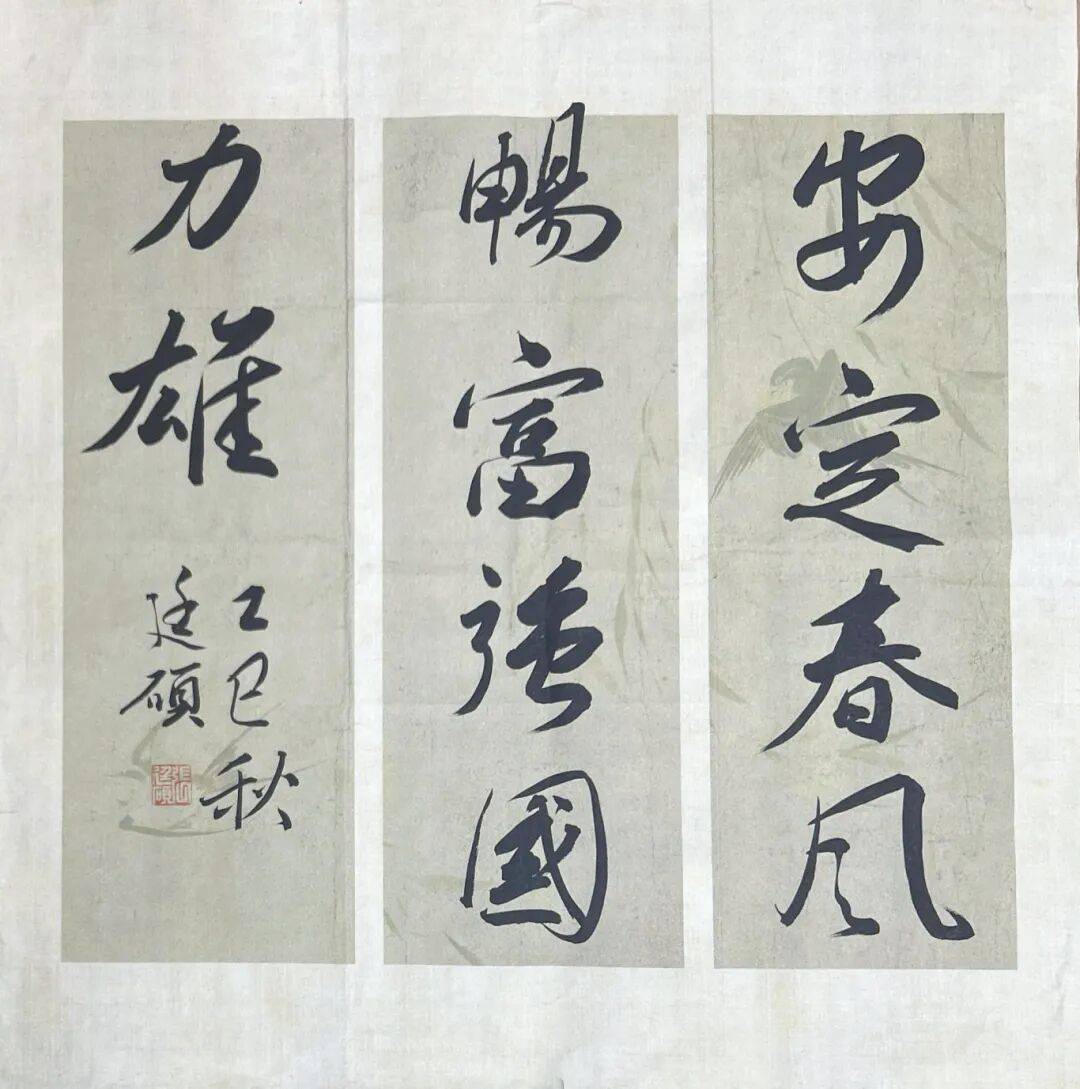 安定春風
暢富強國
力雄
乙巳秋
廷碩
張廷碩